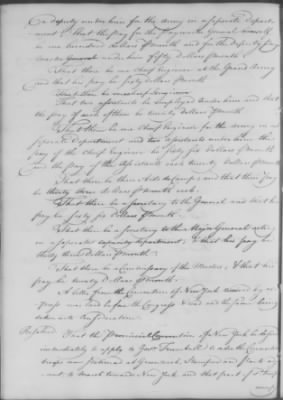 a deputy under him for the Army in a separate depart-
ment; that the pay for the Paymaster General himself
be one hundred dollars pr month and for the deputy pay
master General under him fifty dollars pr month
That there be one chief Engineer at the Grand Army
and that his pay be sixty dollars pr month
That two assistants be employed under him and that
the pay of each of them be twenty dollars pr month
That there be one Chief Engineer for the Army in a
separate department and two assistants under him, the
pay of the Chief Engineer be sixty dollars pr month
and the pay of the assistants each twenty dollars pr month
That there be three Aids de Camp & and that their pay
be thirty three dollars pr month each.
That there be a Secretary to the General and that his
pay be sixty six dollars pr month.
That there be a Secretary to the Major General acting
in a separate department, & that his pay be
thirty three dollars pr month
That there be a Commissary of the Musters, & that his
pay be forty dollars pr month
A letter from the Convention of New York received by ex-
press was laid before the Congress & read and the same being
taken into Consideration
Resolved That the Provincial Convention of New York be desired
immediately to apply to Govr Trumbull to order the Connecticut
troops now stationed at Greenwich, Stamford and parts adja-
cent, to march towards New York, and that part of sd troops